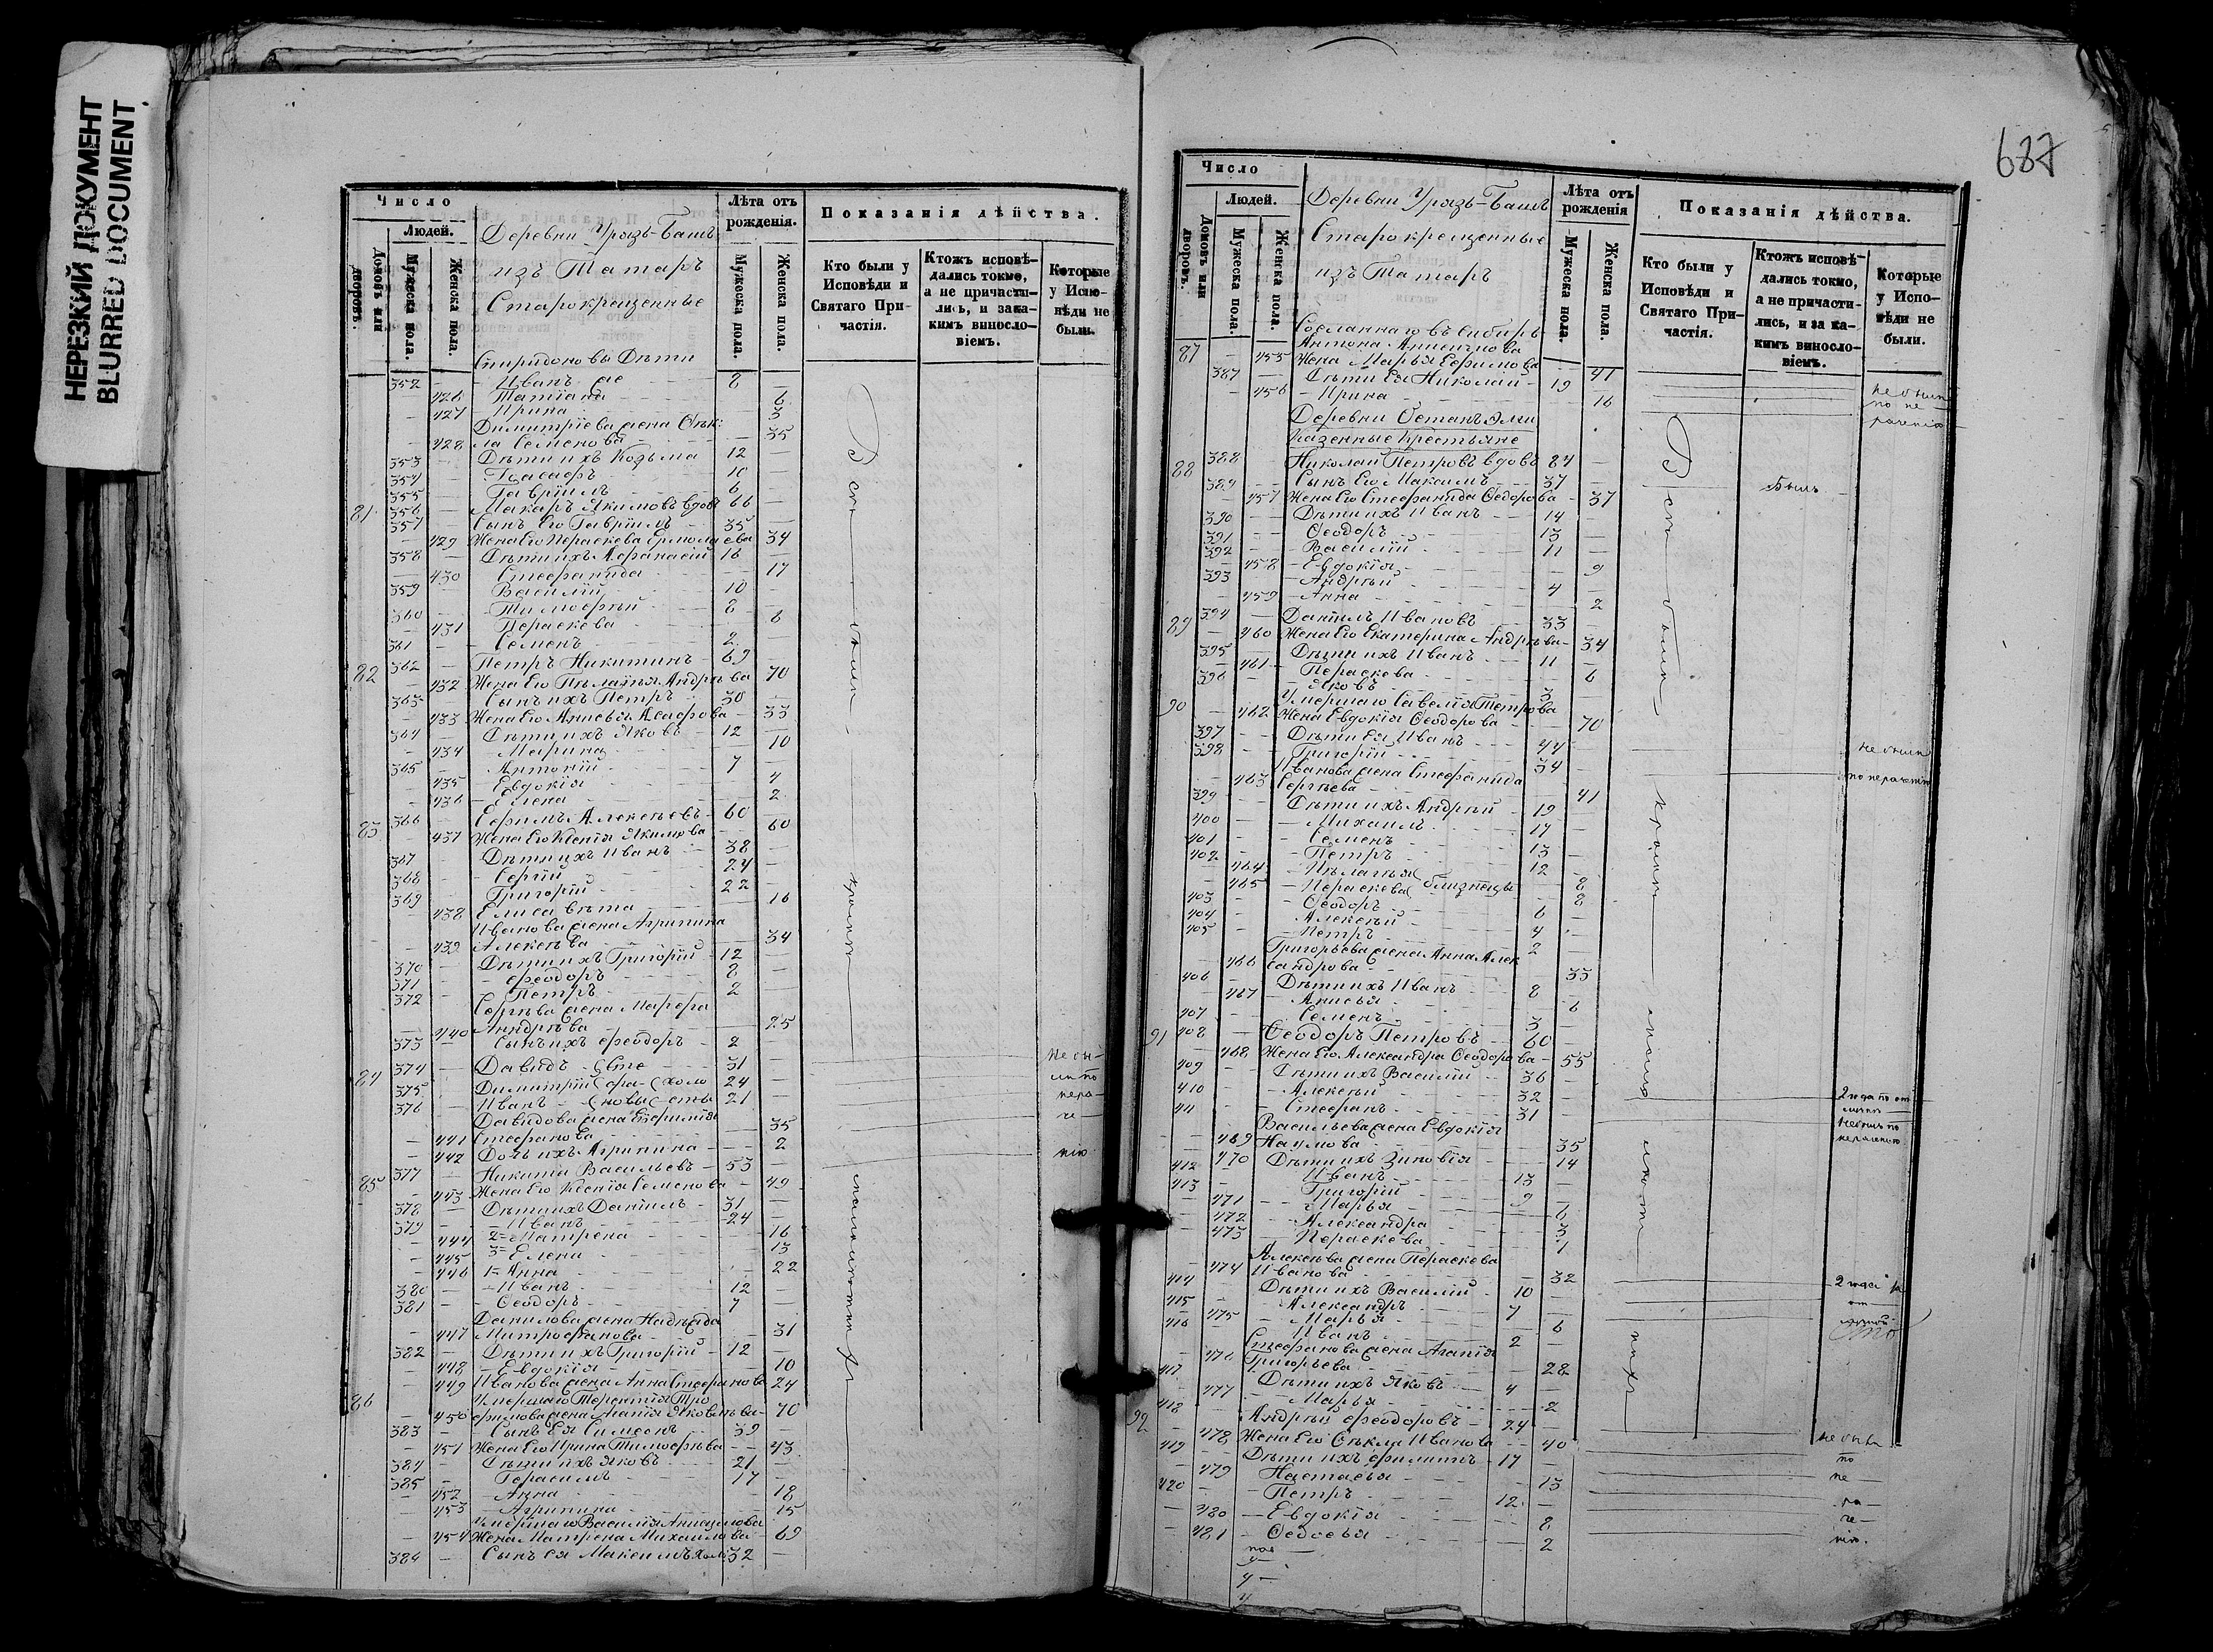 НЕРЕЗКИЙ ДОКУМЕНТ
BLURRED DOCUMENT
Число
Людей.
Домовъ или дворовъ.
Мужеска пола.
Женска пола.
Деревни Уразъ-Башъ
изъ Татаръ
Старокрещенные
Лѣта отъ рожденія.
Мужеска пола.
Женска пола.
Показанія дѣйства.
Кто были у Исповѣди и Святаго Причастія.
Ктожъ исповѣдались токмо, а не причастились, и за какимъ винословіемъ.
Которые у Исповѣди не были.
Спиридоновы Дѣти
352 — Иванъ 8
426 Татіана 6
427 Ирина 3
Димитріева жена Ѳек-
428 ла Семенова 35
353 Дѣти ихъ Козьма 12
354 Іасафъ 10
355 Гавріилъ 6
81 356 Макаръ Якимовъ вдовъ 66
357 Сынъ Его Гавріилъ 35
429 Жена Его Параскева Ермолаева 34
358 Дѣти ихъ Афанасій 16
430 Стефанида 17
359 Василій 10
360 Тимофей 8
431 Параскева 6
361 Семенъ 2
82 362 Петръ Никитинъ 69
432 Жена Его Пелагѣя Андрѣева 70
363 Сынъ ихъ Петръ 30
433 Жена Его Анисья Асафова 33
364 Дѣти ихъ Яковъ 12
434 Марина 10
365 Антоній 7
435 Евдокія 4
436 Елена 2
83 366 Ефимъ Алексѣевъ 60
437 Жена Его Ксенія Якимова 60
367 Дѣти ихъ Иванъ 38
368 Сергій 24
369 Григорій 22
438 Елисавета 16
Иванова жена Агрипина
439 Алексѣва 34
370 Дѣти ихъ Григорій 12
371 Феодоръ 8
372 Петръ 2
Сергѣва жена Марфа
440 Андрѣва 25
373 Сынъ ихъ Феодоръ 2
84 374 Давидъ 31
375 Димитрій 24
376 Иванъ 21
Давидова жена Евфимія
441 Стефанова 35
442 Дочь ихъ Агрипина 2
85 377 Никита Васильевъ 53
443 Жена Его Ксенія Семенова 49
378 Дѣти ихъ Даніилъ 31
379 Иванъ 24
444 2= Матрена 16
445 3= Елена 13
446 1= Анна 22
380 Иванъ 12
381 Ѳеодоръ 7
Данилова жена Надежда
447 Митрофанова 31
382 Дѣти ихъ Григорій 12
448 Евдокія 10
449 Иванова жена Анна Стефанова 24
86 Умершаго Терентія Тро
450 фимова жена Агапія Яковлева 70
383 Сынъ Ея Симеонъ 39
451 Жена Его Ирина Тимофѣева 43
384 Дѣти ихъ Яковъ 21
385 Герасимъ 17
452 Анна 18
453 Агрипина 15
Умершаго Василія
454 Жена Матрена Михаилова 69
384 Сынъ ея Максимъ холо 32
Всѣ были кромѣ
Не бы-
ли по
нера-
че-
нію
687
Число
Людей.
Домовъ или дворовъ.
Мужеска пола.
Женска пола.
Деревни Уразъ-Башъ
Старокрещенные
изъ Татаръ
Лѣта отъ рожденія
Мужеска пола.
Женска пола.
Показанія дѣйства.
Кто были у Исповѣди и Святаго Причастія.
Ктожъ исповѣдались токмо, а не причастились, и за какимъ винословіемъ.
Которые у Исповѣди не были.
Сосланнаго въ Сибирь
87 Антона
455 Жена Марья Ефимова 41
387 Дѣти Ея Николай 19
456 Ирина 16
не были
по не
раченію
Деревни
Казенные Крестьяне
88 388 Николай Петровъ вдовъ 84
389 Сынъ Его Максимъ 37 Былъ
457 Жена Его Стефанида Ѳедорова 37
390 Дѣти ихъ Иванъ 14
391 Ѳеодоръ 13
392 Василій 11
458 Евдокія 9
393 Андрѣй 4
459 Анна 2
89 394 Даніилъ Ивановъ 33
460 Жена Его Екатерина Андрѣва 34
395 Дѣти ихъ Иванъ 11
461 Параскева 6
396 Яковъ 3
90 Умершаго Савелія Петрова
462 Жена Евдокія Ѳеодорова 70
397 Дѣти Ея Иванъ 44 не были
398 Григорій 34
Иванова жена Стефанида по нераченію
463 Сергѣева 41
399 Дѣти ихъ Андрѣй 19
400 Михаилъ 17
401 Семенъ 13
402 Петръ 12
464 Пелагѣя
465 Параскева близнецы 8 8
403 Ѳеодоръ 6
404 Алексѣй 4
405 Петръ 2
Григорьева жена Анна Алек
466 сандрова 33
406 Дѣти ихъ Иванъ 8
467 Анисья 6
407 Семенъ 3
91 408 Ѳеодоръ Петровъ 60
468 Жена Его Александра Ѳеодорова 55
409 Дѣти ихъ Василій 36
410 Алексѣй 32
411 Стефанъ 31
Васильева жена Евдокія
469 Наумова 35
470 Дѣти ихъ Зиновія 14
412 Иванъ 13
413 Григорій 9
471 Марья 6
472 Александра 3
473 Параскева 1
Алексѣва жена Параскева
474 Иванова 32
414 Дѣти ихъ Василій 10
415 Александръ 7
475 Марья 6
416 Иванъ 2
Стефанова жена Агапія
476 Григорьева 28
417 Дѣти ихъ Яковъ 4
477 Марья 2
92 418 Андрѣй Феодоровъ 24
478 Жена Его Ѳекла Иванова 40
419 Дѣти ихъ Филиппъ 17
479 Настасья 13
420 Петръ 12
480 Евдокія 8
481 Ѳедосья 2
Всѣ были кромѣ
не были
по
не
ра-
че-
нію.